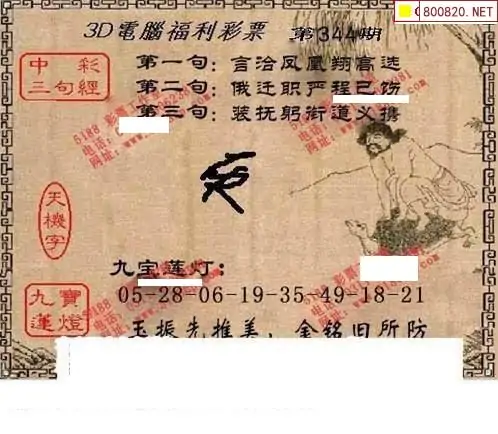 800820.NET
3D電腦福利彩票 第344期
中彩
三句經
第一句：言洽凤凰翔高选
第二句：俄迁职严程已饬
第三句：装抚躬街道义携
天機字
九宝莲灯：
九寶
蓮燈
05-28-06-19-35-49-18-21
玉振先推美，金铭旧所防